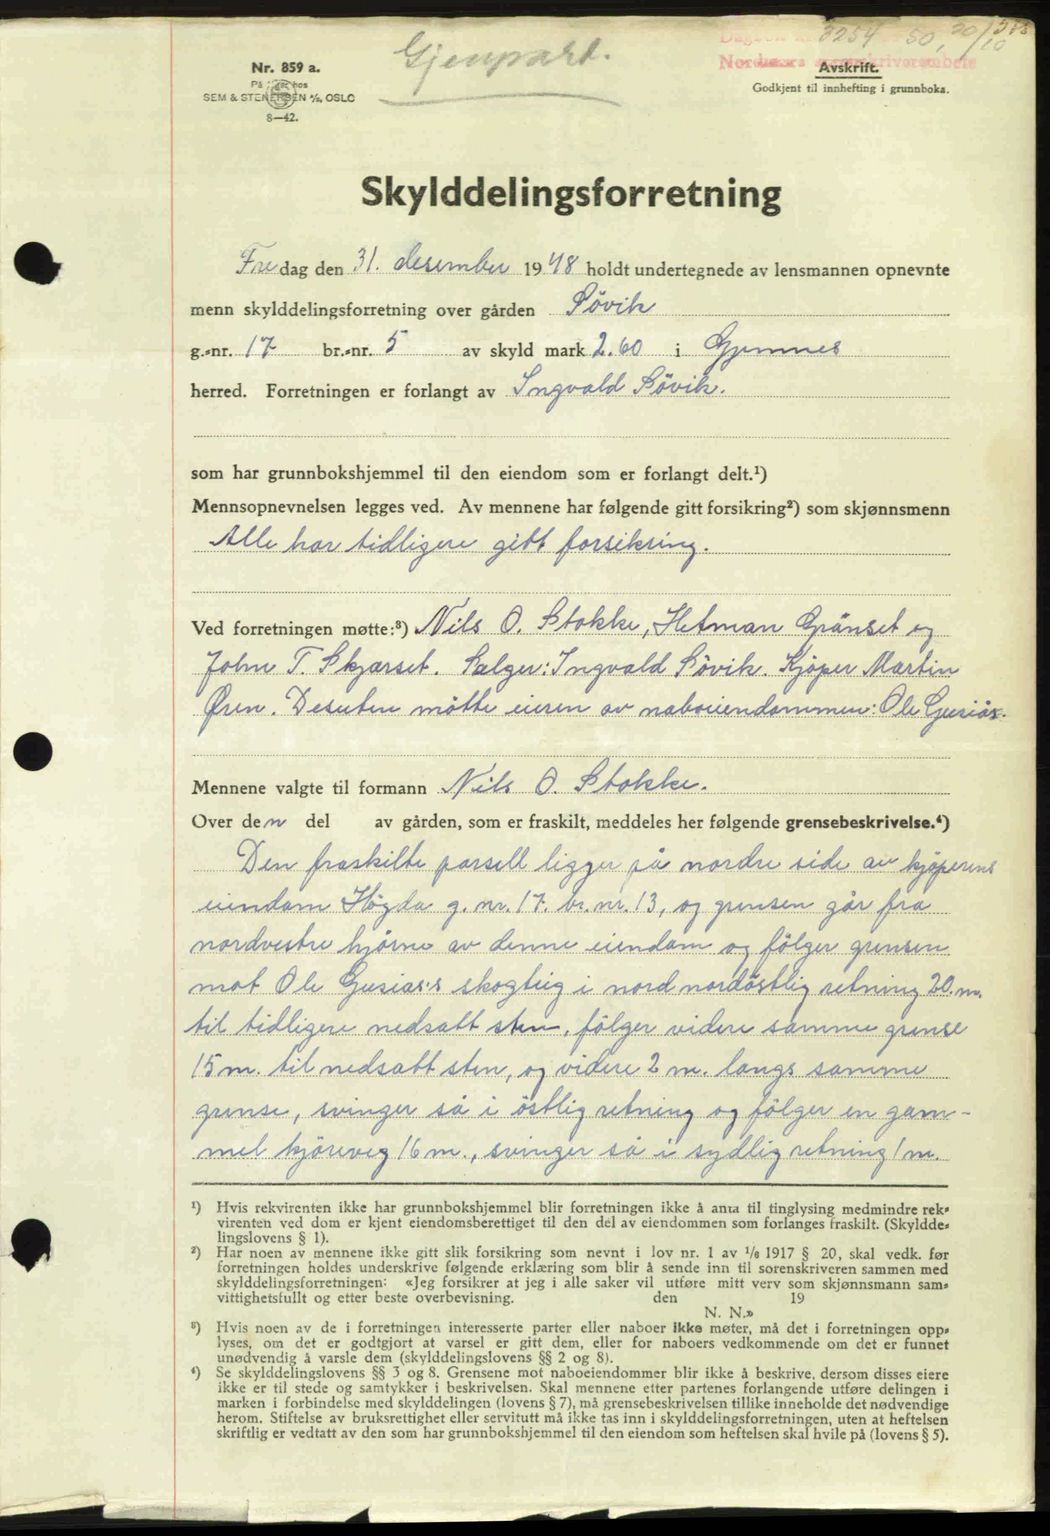 Gjenpart.
3254 50, 20/10
Nr. 859 a.
SEM & STENERSEN A/S, OSLO
8—42.
Avskrift.
Godkjent til innhefting i grunnboka.
Skylddelingsforretning
Fredag den 31. desember 1948 holdt undertegnede av lensmannen opnevnte
menn skylddelingsforretning over gården Sövik
g.-nr. 17 br.-nr. 5 av skyld mark 2.60 i Gjemnes
herred. Forretningen er forlangt av Ingvald Sövik.
som har grunnbokshjemmel til den eiendom som er forlangt delt.¹)
Mennsopnevnelsen legges ved. Av mennene har følgende gitt forsikring²) som skjønnsmenn
Alle har tidligere gitt forsikring.
Ved forretningen møtte:³) Nils O. Stokke, Hetman Grönset og
John T. Skjærset. Selger: Ingvald Sövik. Kjöper Martin
Øren. Desuten mötte eieren av naboeiendommen: Ole Gusiås.
Mennene valgte til formann Nils O. Stokke.
Over den del av gården, som er fraskilt, meddeles her følgende grensebeskrivelse.⁴)
Den fraskilte parsell ligger på nordre side av kjöperens
eiendom Högda g. nr. 17. br. nr. 13, og grensen går fra
nordvestre hjörne av denne eiendom og fölger grensen
mot Ole Gusiås's skogteig i nord nordöstlig retning 20. m.
til tidligere nedsatt sten, fölger videre samme grense
15 m. til nedsatt sten, og videre 2 m. langs samme
grense, svinger så i östlig retning og fölger en gam-
mel kjöreveg 16 m., svinger så i sydlig retning 1 m.
¹) Hvis rekvirenten ikke har grunnbokshjemmel blir forretningen ikke å anta til tinglysing medmindre rek-
virenten ved dom er kjent eiendomsberettiget til den del av eiendommen som forlanges fraskilt. (Skyldde-
lingslovens § 1).
²) Har noen av mennene ikke gitt slik forsikring som nevnt i lov nr. 1 av 1/6 1917 § 20, skal vedk. før
forretningen holdes underskrive følgende erklæring som blir å sende inn til sorenskriveren sammen med
skylddelingsforretningen: «Jeg forsikrer at jeg i alle saker vil utføre mitt verv som skjønnsmann sam-
vittighetsfullt og etter beste overbevisning. den 19
N. N.»
³) Hvis noen av de i forretningen interesserte parter eller naboer ikke møter, må det i forretningen opp-
lyses, om det er godtgjort at varsel er gitt dem, eller for naboers vedkommende om det er funnet
unødvendig å varsle dem (skylddelingslovens §§ 2 og 8).
⁴) Se skylddelingslovens §§ 3 og 8. Grensene mot naboeiendommer blir ikke å beskrive, dersom disses eiere
ikke er til stede og samtykker i beskrivelsen. Skal mennene etter partenes forlangende utføre delingen i
marken i forbindelse med skylddelingen (lovens § 7), må grensebeskrivelsen tillike inneholde det nødvendige
herom. Stiftelse av bruksrettighet eller servitutt må ikke tas inn i skylddelingsforretningen, uten at heftelsen
skriftlig er vedtatt av den som har grunnbokshjemmel til den eiendom som heftelsen skal hvile på (lovens § 5).